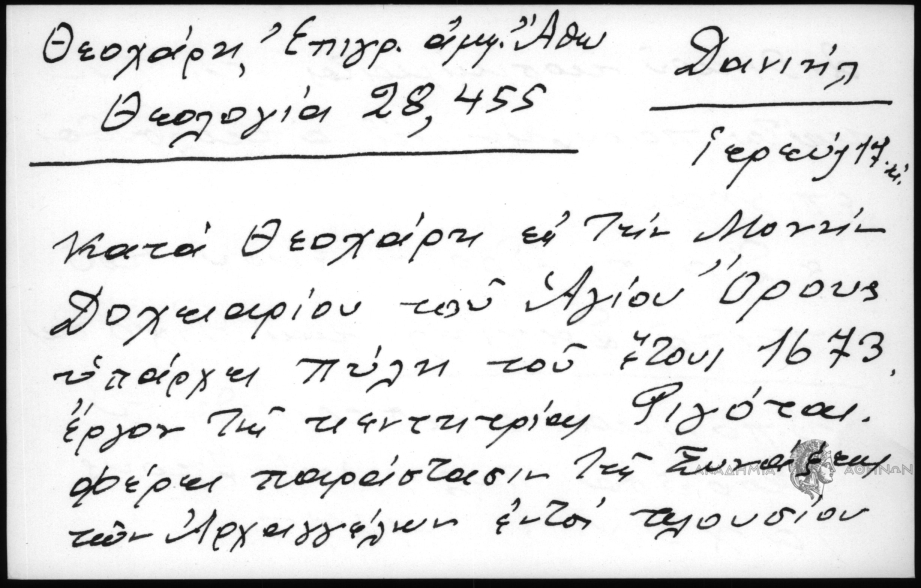 Θεοχάρη, Ἐπιγρ. ἀμφ. Ἄθω
Θεολογία 28, 455
Δανιήλ
Ἱερεύς 17. αἰ.
Κατὰ Θεοχάρη εἰς τὴν Μονὴν
Δοχειαρίου τοῦ Ἁγίου Ὄρους
ὑπάρχει πύλη τοῦ ἔτους 1673,
ἔργον τῆς κεντητρίας
φέρει παράστασιν τῆς Συνάξεως
τῶν Ἀρχαγγέλων ἐντὸς πλουσίου
ΑΚΑΔΗΜΙΑ ΑΘΗΝΩΝ